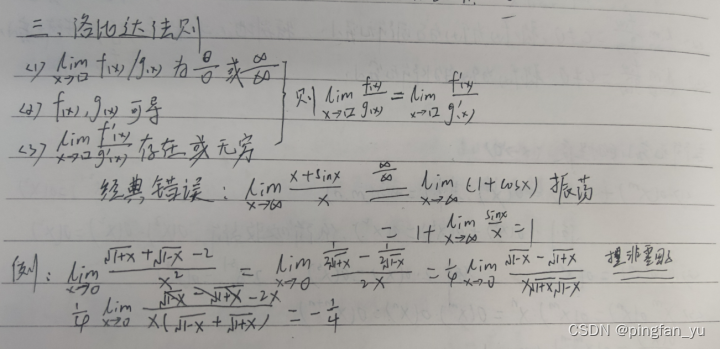 三、洛比达法则
(1) lim x→□ f(x)/g(x) 为 0/0 或 ∞/∞
(2) f(x), g(x) 可导
(3) lim x→□ f'(x)/g'(x) 存在或无穷
则 lim x→□ f(x)/g(x) = lim x→□ f'(x)/g'(x)
经典错误: lim x→∞ (x+sinx)/x =(∞/∞) lim x→∞ (1+cosx) 振荡
= 1 + lim x→∞ sinx/x = 1
例: lim x→0 (√(1+x) + √(1-x) - 2)/x² = lim x→0 (1/(2√(1+x)) - 1/(2√(1-x)))/(2x) = 1/4 lim x→0 (√(1-x) - √(1+x))/(x√(1+x)√(1-x)) 提非零因
1/4 lim x→0 (√(1-x) - √(1+x) -2x)/(x(√(1-x) + √(1+x))) = -1/4
CSDN @pingfan_yu